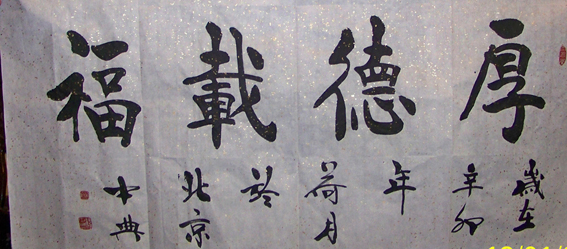 厚德載福
歲在
辛卯
年
荷月
於
北京
典